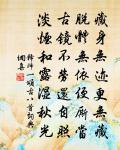 藏身無迹更無藏
脫體無依便厮當
古鏡不磨還自照
淡煙和露濕秋光
釋師一頌古八首